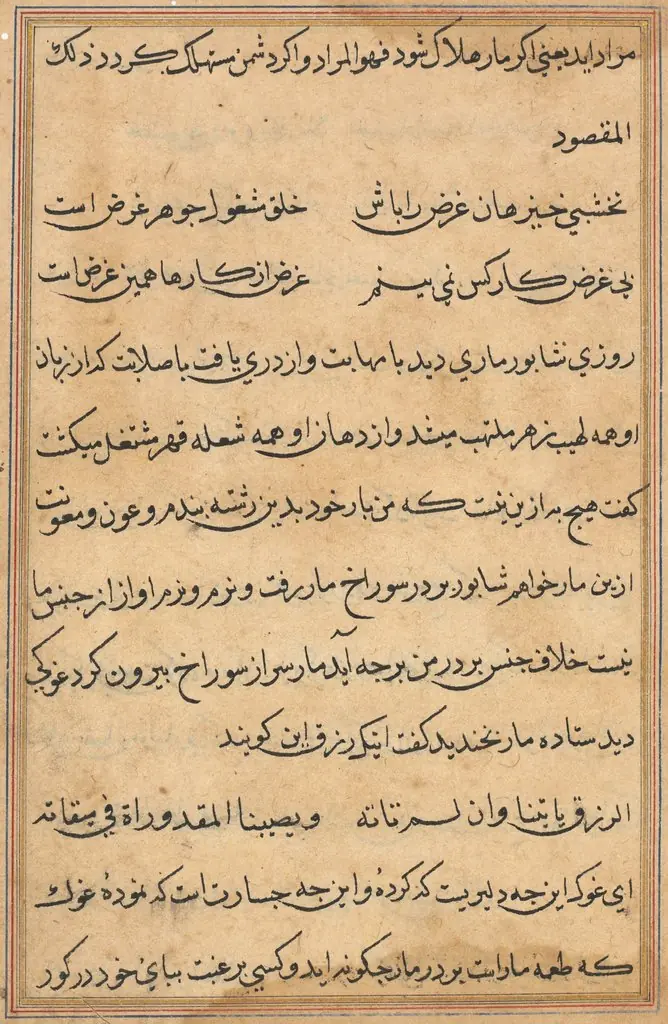 مراد اید یعنی اکر مار هلاک شود فهو المراد و اکر دشمن مستهلک کردد ذلک
المقصود
نخشبی خیز هان غرض را باش خلق مشغول جوهر غرض است
بی غرض کار کس نمی بینم غرض از کارها همین غرض است
روزی شابور ماری دید با مهابت و ازدری یافت با صلابت که از زبان
او همه لهیب زهر ملتهب میشد و از دهان او همه شعله قهر مشتغل میکشت
کفت هیچ به ازین نیست که من بار خود بدین رشته بندم و عون و معونت
ازین مار خواهم شابور بر در سوراخ مار رفت و نرم و نرم اواز از جنس ما
نیست خلاف جنس بر در من بر چه آید مار سر از سوراخ بیرون کرد غوکی
دید ستاده مار بخندید کفت اینک رزق این کویند
الرزق یاتینا وان لم ناته ویصیبنا المقدور اة فی میقاته
ای غوک این چه دلیریست که کردۀ و این چه جسارت است که نمودۀ غوک
که طعمه مار است بر در مار چکونه اید و کسی برغبت بپای خود در کور